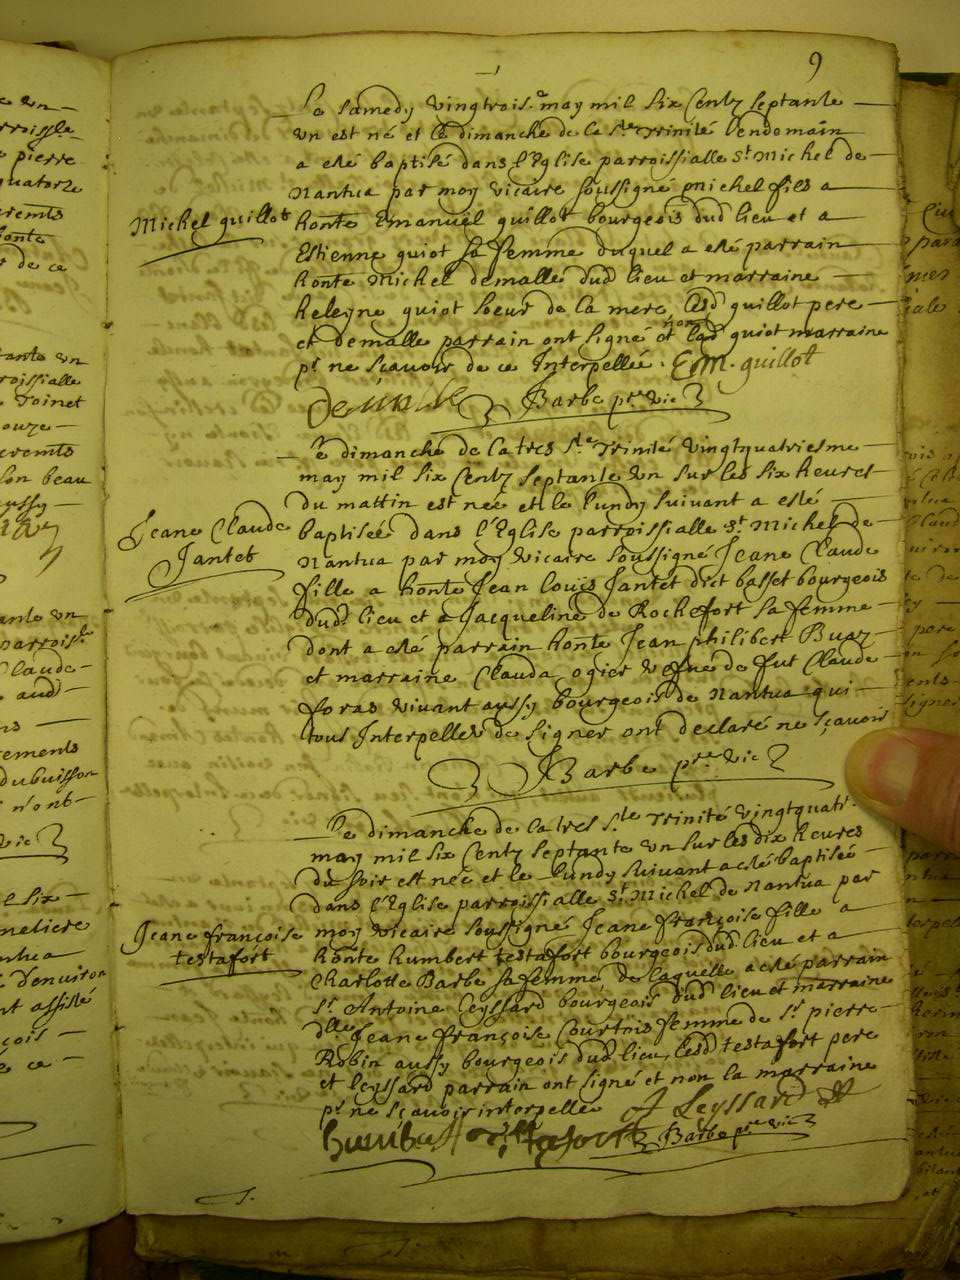 9
Le samedy vingtrois.e may mil six Centz septante
un est né et le dimanche de la S.te Trinité lendemain
a esté baptisé dans l'Eglise parroissialle S.t Michel de
Nantua par moy vicaire soussigné Michel fils a
Michel guillot
honte Emanuel guillot bourgeois dud lieu et a
Estienne guiot sa femme duquel a esté parrain
honte Michel demalle dud lieu et marraine
heleyne guiot soeur de la mere, lesd guillot pere
et demalle parrain ont signé et non lad guiot marraine
p.r ne sçavoir de ce Interpellée. Em. guillot
Demalle Barbe p.re vic
Le dimanche de la tres S.te Trinité vingtquatriesme
may mil six Centz septante un sur les six heures
du mattin est née et le lundy suivant a esté
Jeane Claude
Jantet
baptisée dans l'Eglise parroissialle S.t Michel de
Nantua par moy vicaire soussigné Jeane Claude
fille a honte Jean Louis Jantet dict basset bourgeois
dud. lieu et a Jacqueline de Rochefort sa femme
dont a esté parrain honte Jean philibert Buaz
et marraine Clauda ogier vefve de fut Claude
foras vivant aussy bourgeois de Nantua qui
tous Interpellés de signer ont declaré ne sçavoir
Barbe p.re vic
Le dimanche de la tres S.te Trinité vingtquat.
may mil six Centz septante un sur les dix heures
du soir est née et le lundy suivant a esté baptisée
dans l'Eglise parroissialle S.t Michel de Nantua par
Jeane françoise
testafort
moy vicaire soussigné Jeane françoise fille a
honte humbert testafort bourgeois dud lieu et a
Charlotte Barbe sa femme, de laquelle a esté parrain
S.r Antoine Leyssard bourgeois dud lieu et marraine
d.lle Jeane françoise Courtois femme de S.r pierre
Robin aussy bourgeois dud lieu, lesd testafort pere
et leyssard parrain ont signé et non la marraine
p.r ne sçavoir interpellée A Leyssard
humbert testafort Barbe p.re vic